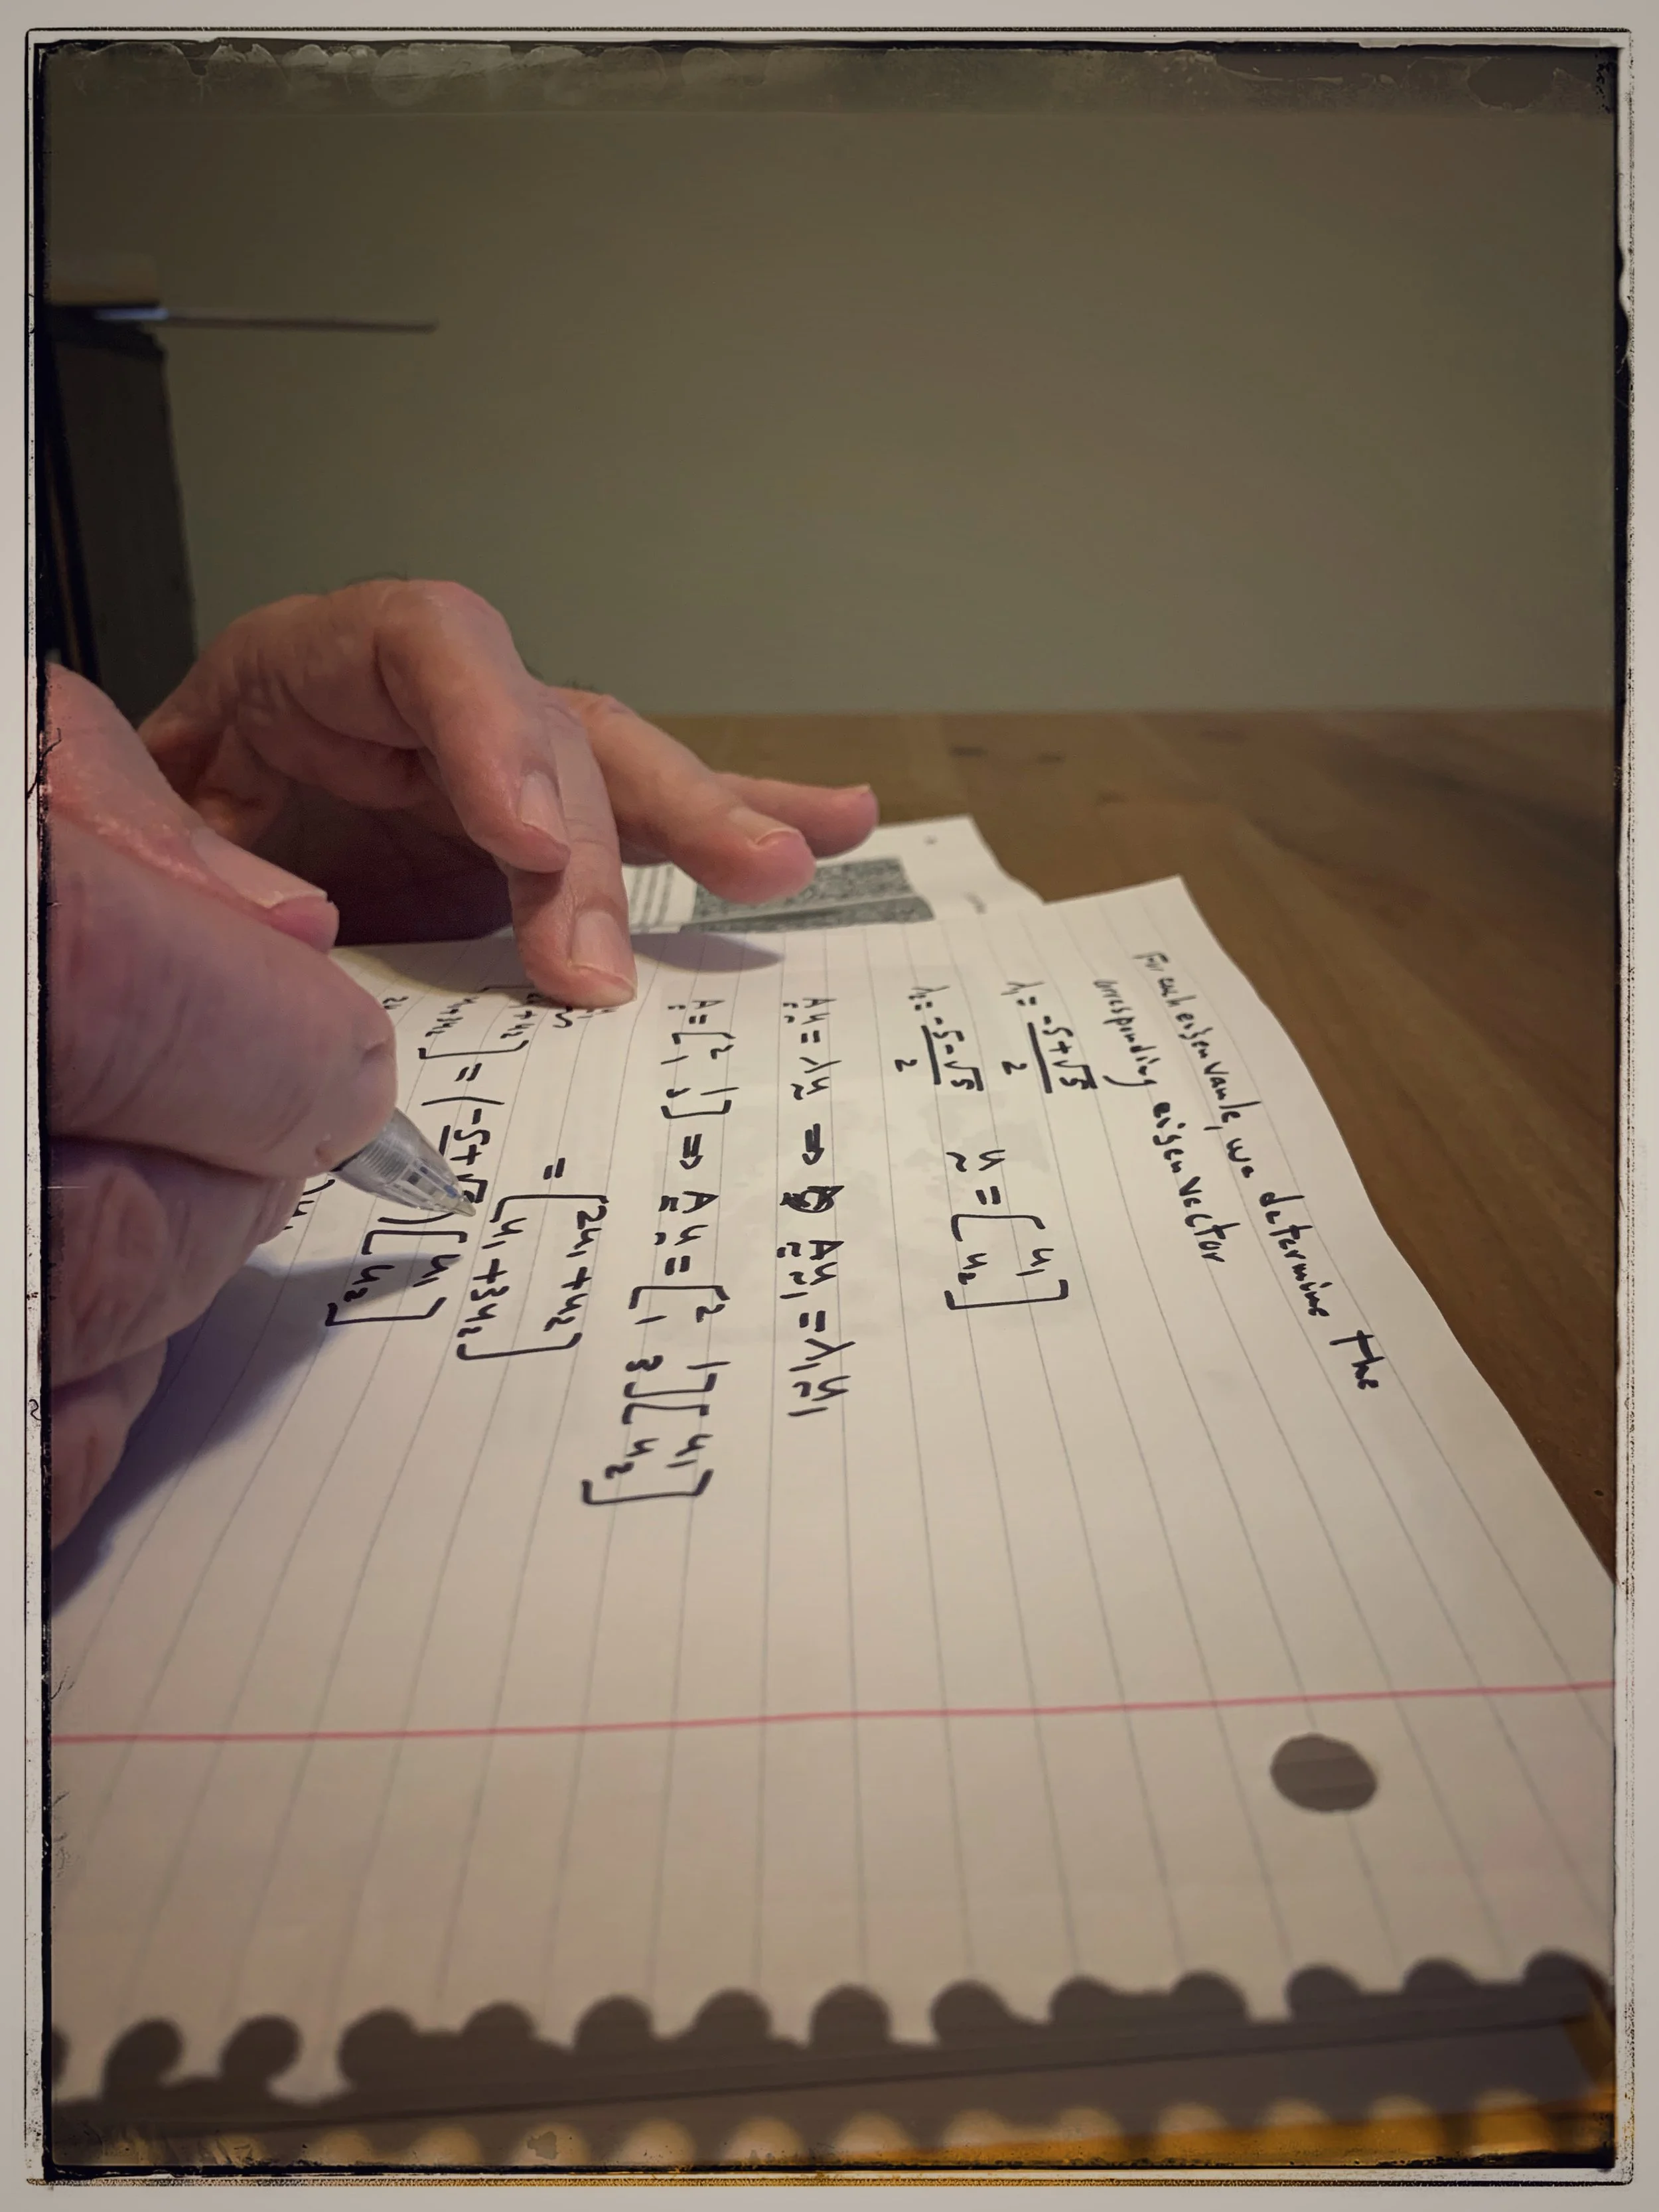 For each eigenvaule, we determine the
corresponding eigen vector
λ₁ = (-5+√5)/2
λ₂ = (-5-√5)/2 u = [u₁ u₂]
A u = λ u ⇒ A u₁ = λ₁ u₁
A = [2 1; 1 3] ⇒ A u = [2 1; 1 3] [u₁; u₂]
= [2u₁ + u₂; u₁ + 3u₂]
[u₁ + u₂; u₁ + 3u₂] = (-5+√ ) [u₁; u₂]